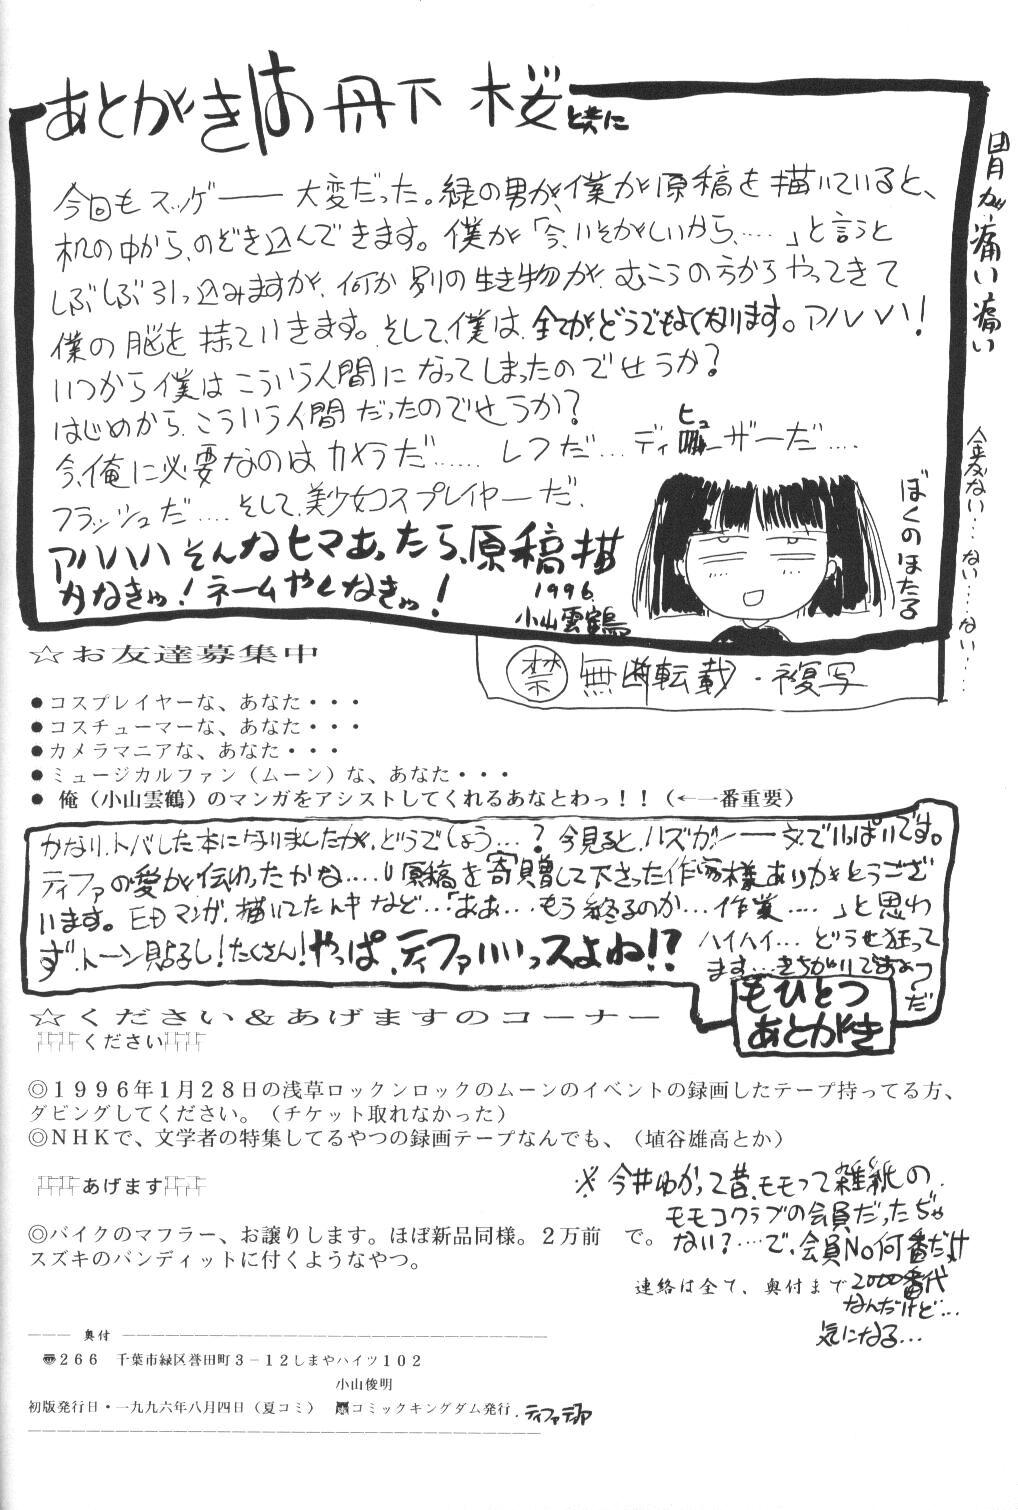 あとがきは 丹下 桜 と共に
今回もスッゲー―― 大変だった。緑の男が、僕が原稿を描いていると、
机の中から、のぞき込んできます。僕が「今、いそがしいから、‥‥」と言うと
しぶしぶ引っ込みますが、何か別の生き物が、むこうの方からやってきて
僕の脳を持っていきます。そして、僕は、全てが、どうでもよくなります。アハハハ!
いつから僕はこういう人間になってしまったのでせうか?
はじめから、こういう人間だったのでせうか?
今、俺に必要なのはカメラだ…… レフだ… ディヒューザーだ‥‥
フラッシュだ‥‥そして、美少女コスプレイヤーだ、
アハハハ そんなヒマあったら、原稿描
かなきゃ! ネームやんなきゃ!
1996.
小山雲鶴
ぼくのほたる
胃が痛い痛い
金がない… ない… ない…
禁 無断転載・複写
☆お友達募集中
●コスプレイヤーな、あなた・・・
●コスチューマーな、あなた・・・
●カメラマニアな、あなた・・・
●ミュージカルファン(ムーン)な、あなた・・・
● 俺(小山雲鶴)のマンガをアシストしてくれるあなとわっ!!(←一番重要)
かなり、トバした本になりましたが、どうでしょう…? 今見ると、ハズガシ――文でいっぱいです。
ティファの愛が伝わったかな‥‥ 原稿を寄贈して下さった作家様ありがとうござ
います。EDマンガ、描いてた時など…「ああ… もう終るのか… 作業‥‥」と思わ
ず、トーン貼るし!たくさん! やっぱ、ティファいいっスよね!?
ハイハイ… どうせ狂って
ます…きちがいですよつ
だ
もひとつ
あとがき
☆ください&あげますのコーナー
ください
◎1996年1月28日の浅草ロックンロックのムーンのイベントの録画したテープ持ってる方、
ダビングしてください。(チケット取れなかった)
◎NHKで、文学者の特集してるやつの録画テープなんでも、(埴谷雄高とか)
あげます
◎バイクのマフラー、お譲りします。ほぼ新品同様。2万前 で。
スズキのバンディットに付くようなやつ。
※ 今井ゆかって昔、モモって雑紙の
モモコクラブの会員だったぢゃ
ない?…で、会員No何番だっけ
2000番代
なんだけど…
気になる…
連絡は全て、奥付まで
奥付
〠266 千葉市緑区誉田町3-12しまやハイツ102
小山俊明
初版発行日・一九九六年八月四日(夏コミ) コミックキングダム発行